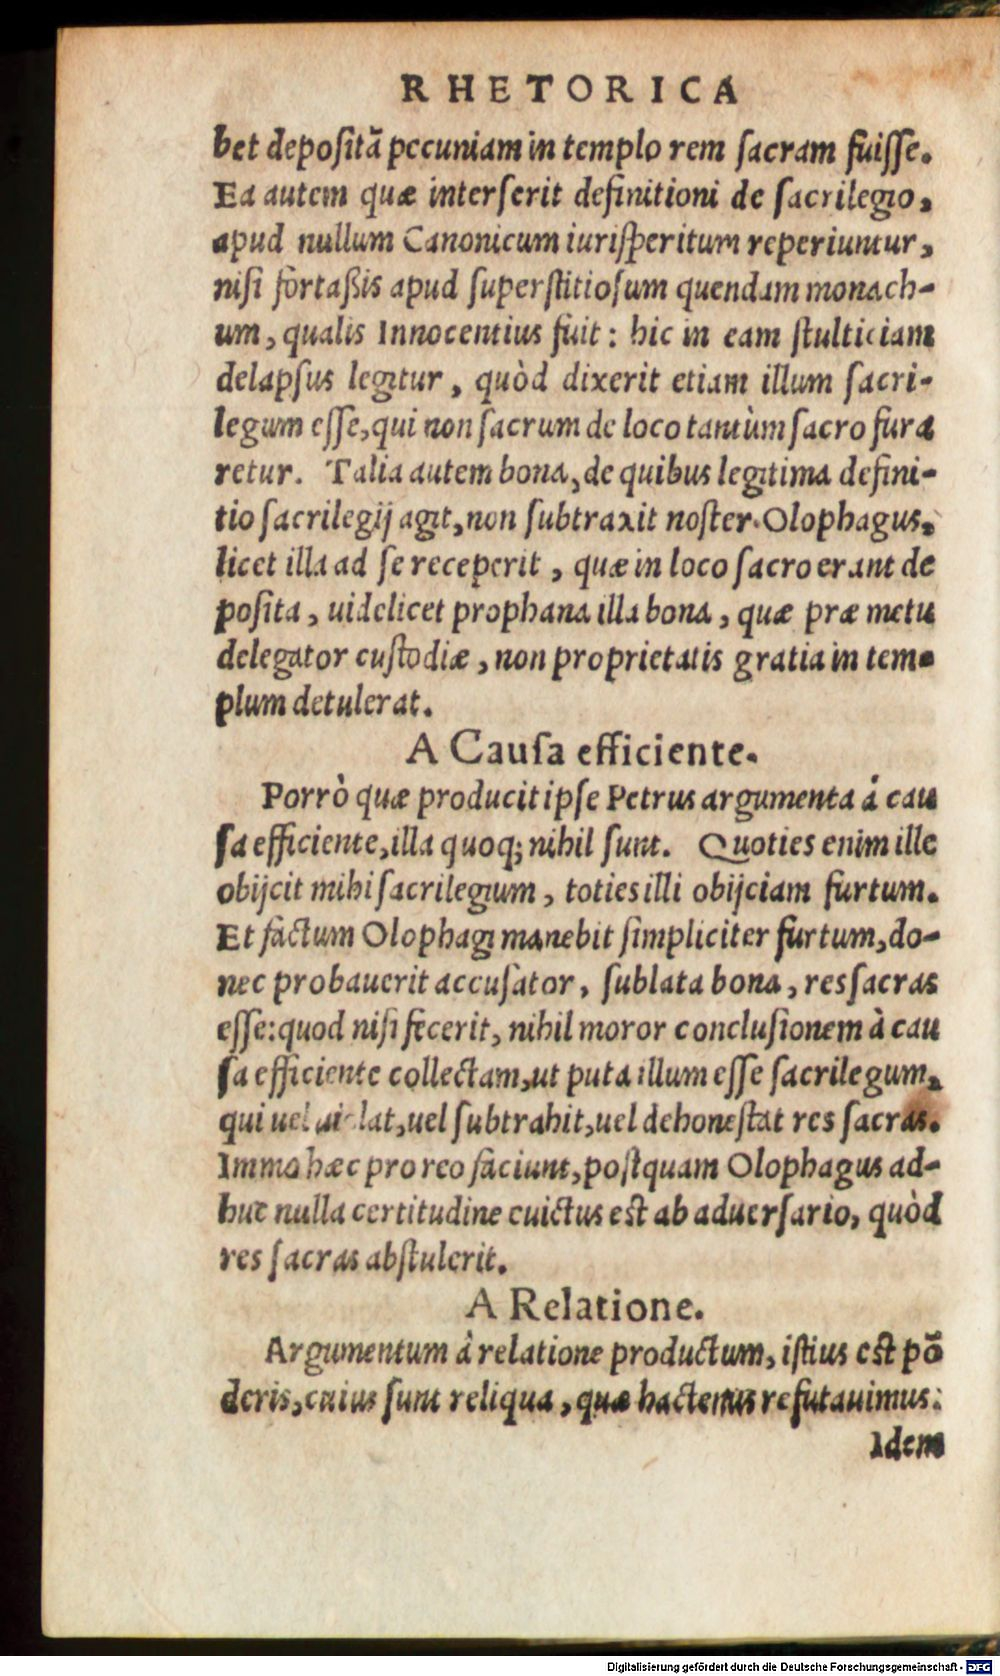 RHETORICA
bet depoſitã pecuniam in templo rem ſacram fuiſſe.
Ea autem quæ interſerit definitioni de ſacrilegio,
apud nullum Canonicum iuriſperitum reperiuntur,
niſi fortaßis apud ſuperſtitioſum quendam monach-
um, qualis Innocentius fuit: hic in eam ſtulticiam
delapſus legitur, quòd dixerit etiam illum ſacri-
legum eſſe, qui non ſacrum de loco tantùm ſacro fura
retur. Talia autem bona, de quibus legitima defini-
tio ſacrilegij agit, non ſubtraxit noſter Olophagus,
licet illa ad ſe receperit, quæ in loco ſacro erant de
poſita, uidelicet prophana illa bona, quæ præ metu
delegator cuſtodiæ, non proprietatis gratia in tem-
plum detulerat.
A Cauſa efficiente.
Porrò quæ producit ipſe Petrus argumenta á cau
ſa efficiente, illa quoq; nihil ſunt. Quoties enim ille
obijcit mihi ſacrilegium, toties illi obijciam furtum.
Et factum Olophagi manebit ſimpliciter furtum, do-
nec probauerit accuſator, ſublata bona, res ſacras
eſſe: quod niſi fecerit, nihil moror concluſionem à cau
ſa efficiente collectam, ut puta illum eſſe ſacrilegum,
qui uel uiolat, uel ſubtrahit, uel dehoneſtat res ſacras.
Immo hæc pro reo faciunt, poſtquam Olophagus ad-
huc nulla certitudine euictus eſt ab aduerſario, quòd
res ſacras abſtulerit.
A Relatione.
Argumentum â relatione productum, iſtius eſt põ
deris, cuius ſunt reliqua, quæ hactenus refutauimus:
Idem
Digitalisierung gefördert durch die Deutsche Forschungsgemeinschaft - DFG